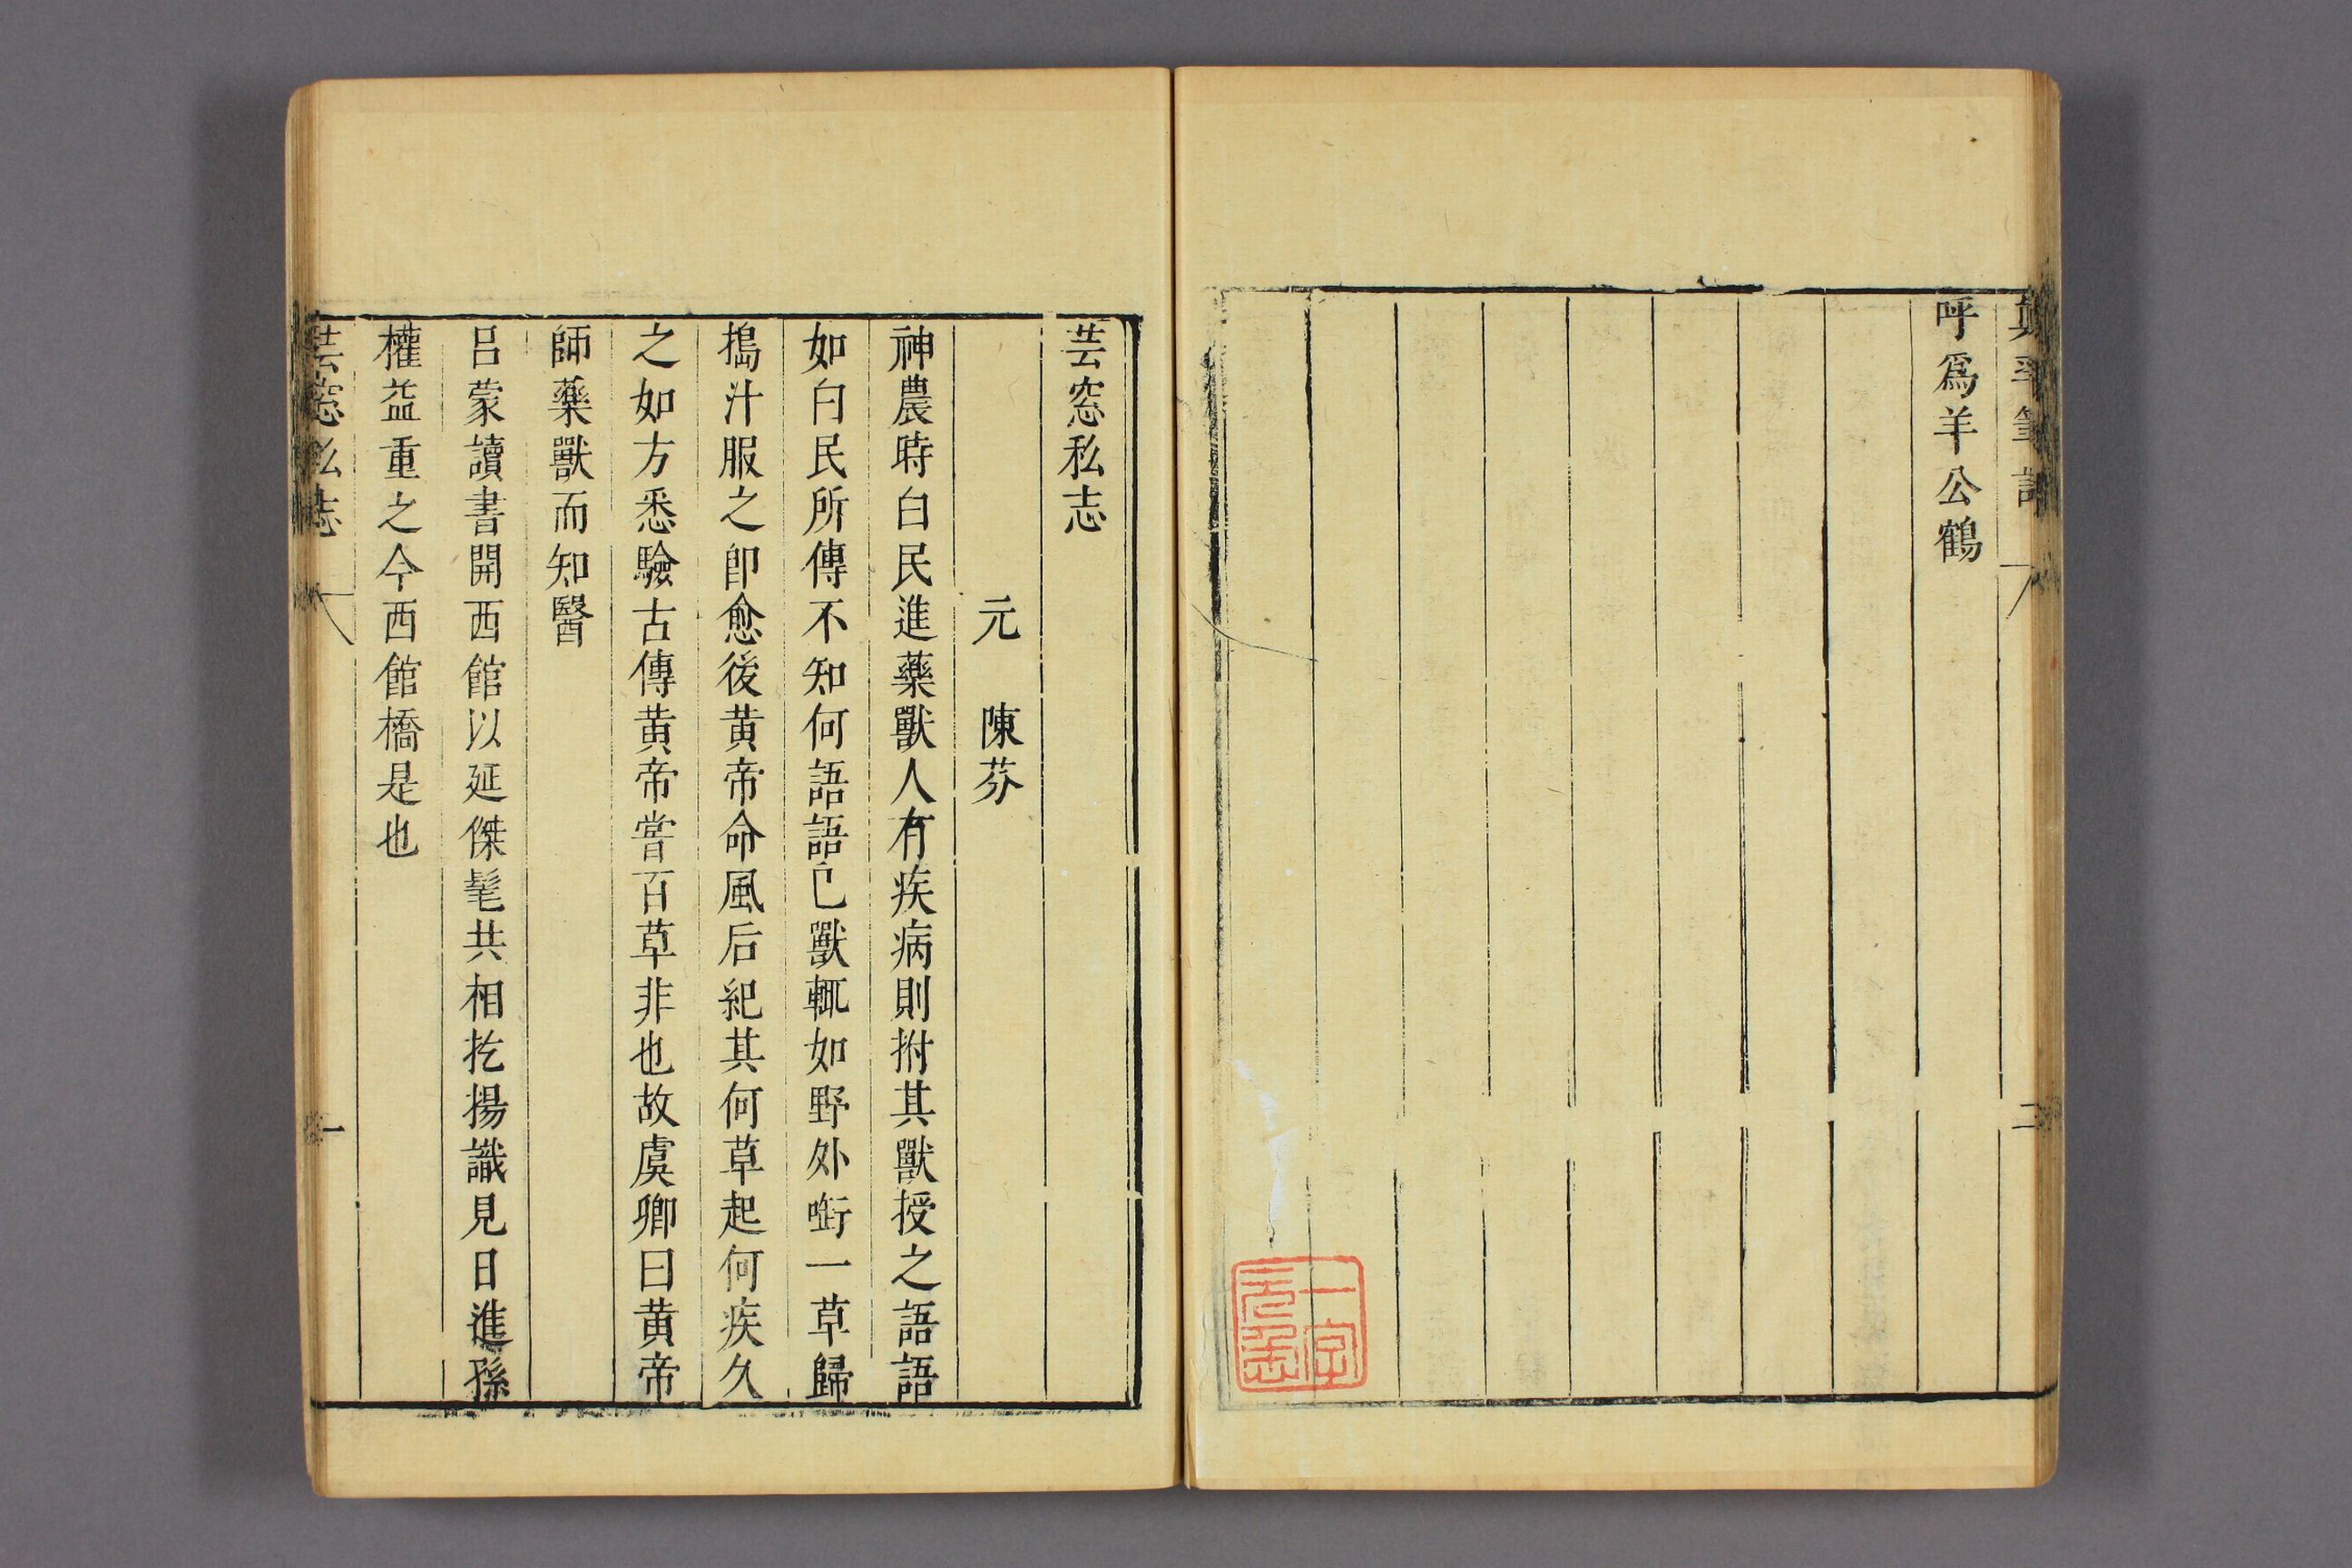 真率筆記
二
呼爲羊公鶴
一字
芸窓私志
元 陳芬
神農時白民進藥獸人有疾病則拊其獸授之語語
如白民所傳不知何語語已獸輒如野外啣一草歸
搗汁服之卽愈後黄帝命風后紀其何草起何疾久
之如方悉驗古傳黄帝嘗百草非也故虞卿曰黄帝
師藥獸而知醫
呂蒙讀書開西館以延傑髦共相扢揚識見日進孫
權益重之今西館橋是也
芸窓私志
一